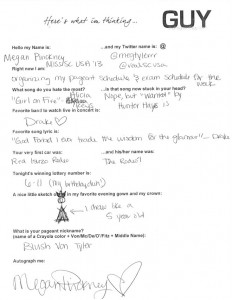 Here's what im thinking... GUY
Hello my Name is: ...and my Twitter name is: @
Megan Pinckney @meglylernr
Right now I am Miss SC USA '13 @realscusa
organizing my pageant schedule & exam schedule for the week
What song do you hate the most? ...is that song now stuck in your head?
"Girl on Fire" Alicia Keys Nope, but "Wanted" by Hunter Hayes is
Favorite band to watch live in concert is:
Drake
Favorite song lyric is:
"God forbid I can trade the wisdom for the glamour"... Drake
Your very first car was: ...and his/her name was:
Red Isuzu Rodeo The Rodeo?
Tonight's winning lottery number is:
6-11 (my birthday duh)
A nice little sketch of me in my favorite evening gown and my crown:
I draw like a
5 year old
What is your pageant nickname?
(name of a Crayola color + Von/Mc/De/O'/Fitz + Middle Name):
Blush Von Tyler
Autograph me:
Megan Pinckney